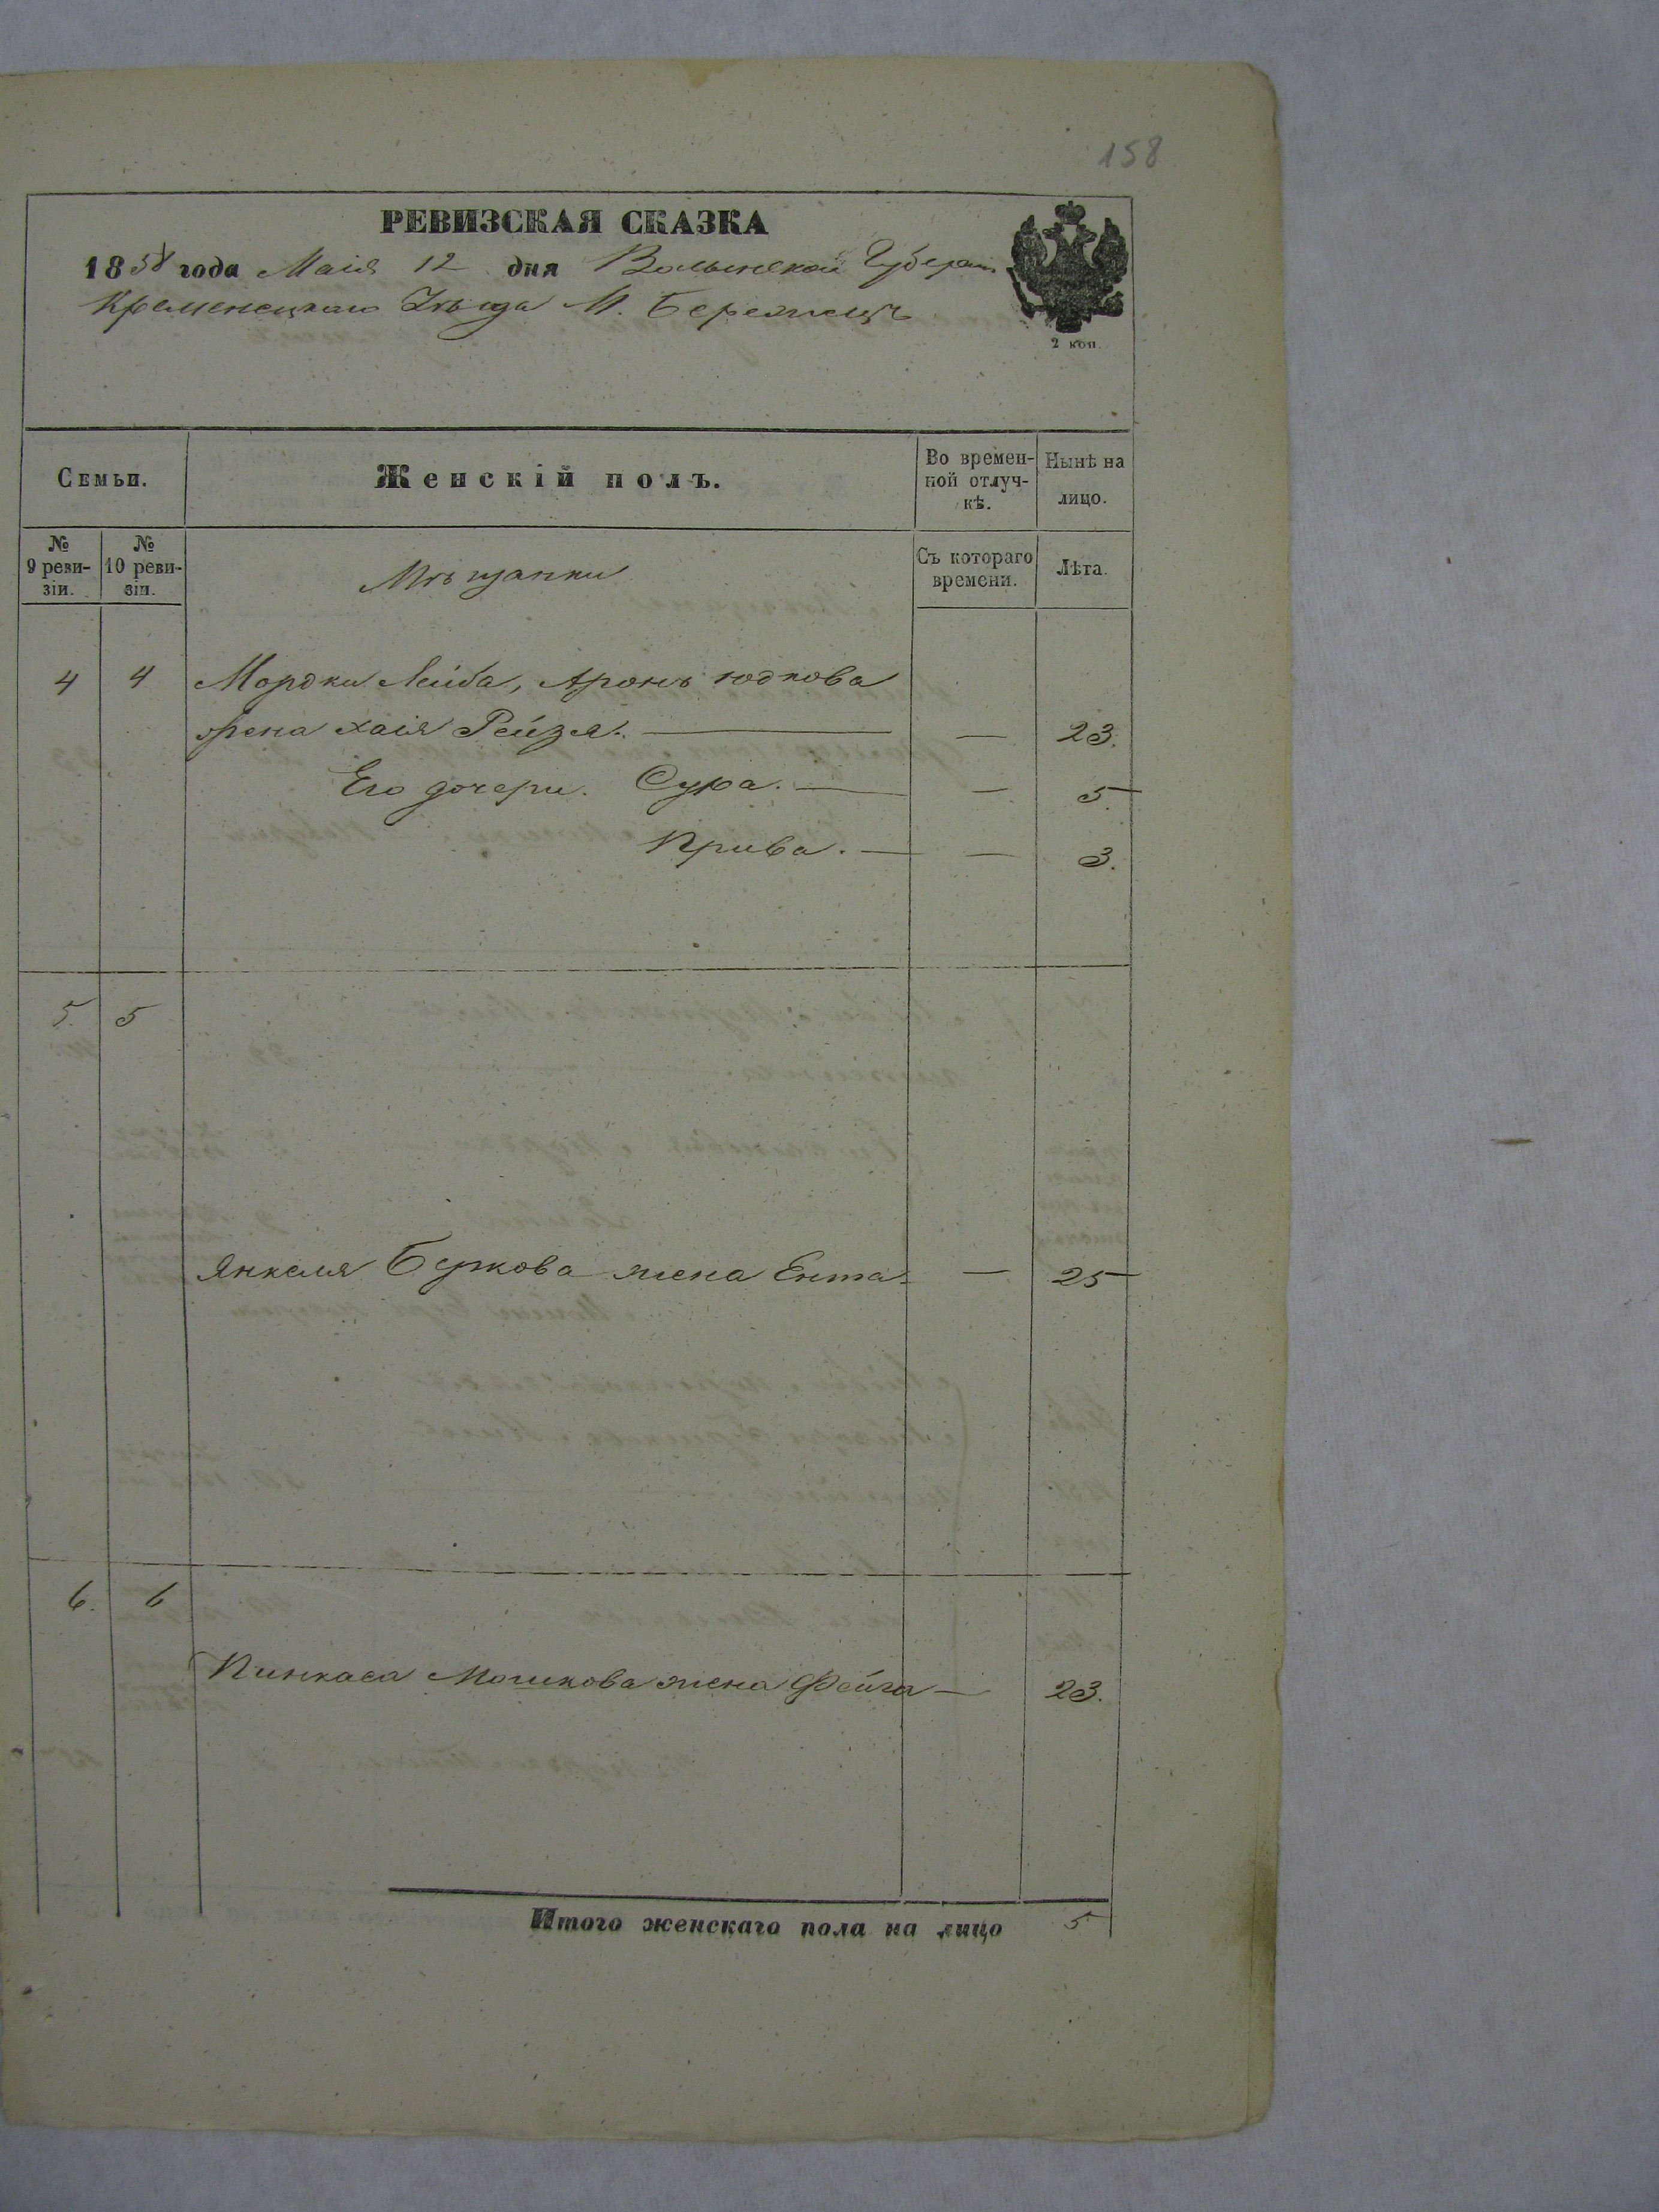 158
РЕВИЗСКАЯ СКАЗКА
1858 года Маія 12 дня Волынской Губерніи
Кременецкаго Уѣзда М. Бережецъ
2 коп.
Семьи.
Женскій полъ.
Во времен-
ной отлуч-
кѣ.
Нынѣ на
лицо.
№
9 реви-
зіи.
№
10 реви-
зіи.
Мѣщанки
Съ котораго
времени.
Лѣта.
4 4 Мордки Лейба, Аронъ Юдкова
жена Хаія Рейзя. — — 23.
Его дочери. Сура. — — 5.
Прива. — — 3.
5. 5
Янкеля Беркова жена Ента — — 25
6. 6
Пинкаса Мошкова жена Фейга — 23.
Итого женскаго пола на лицо 5